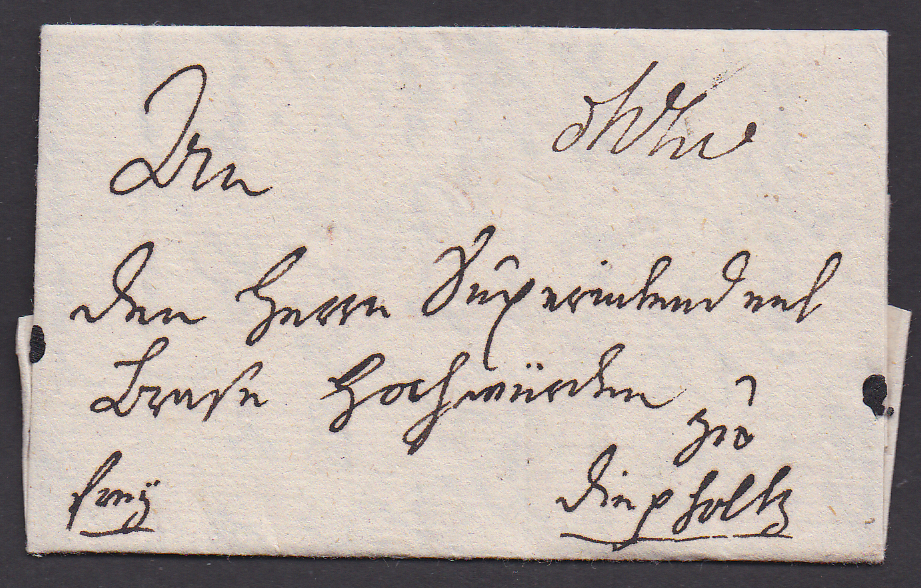 An
den Herrn Superintendent
Brase Hochwürden
zu
frey Diepholtz